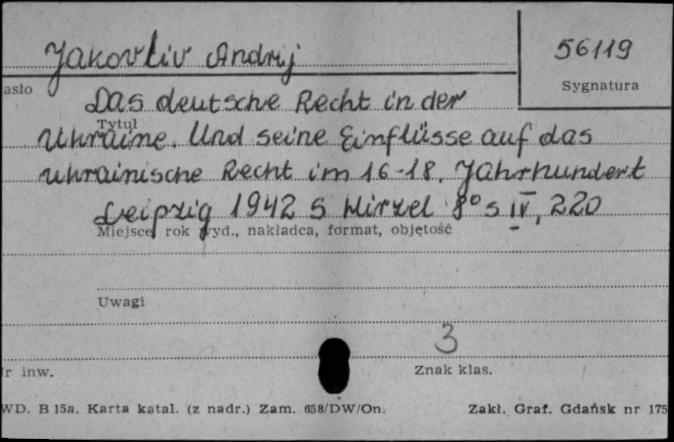 Jakovliv Andrij
56119
asło
Sygnatura
Das deutsche Recht in der
Tytuł
Ukraine. Und seine Einflüsse auf das
ukrainische Recht im 16-18. Jahrhundert
Leipzig 1942 S Hirzel 8° s IV, 220
Miejsce, rok wyd., nakładca, format, objętość
Uwagi
3
r inw.
Znak klas.
WD. B 15a. Karta katal. (z nadr.) Zam. 658/DW/On.
Zakł. Graf. Gdańsk nr 175